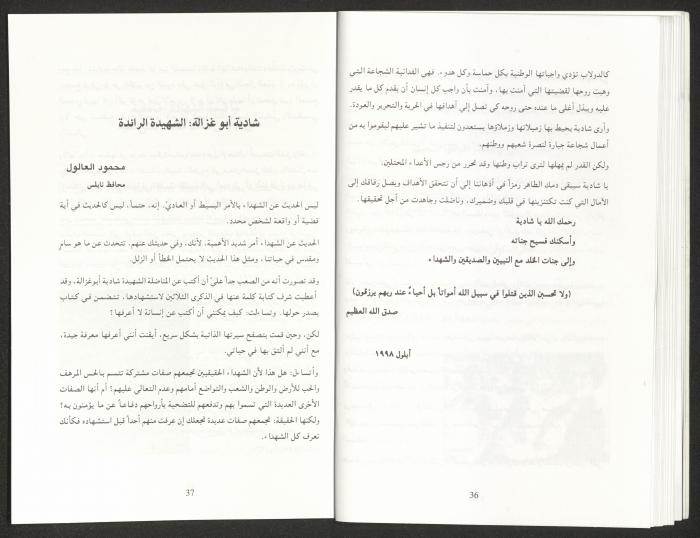 كالدولاب تؤدي واجباتها الوطنية بكل حماسة وكل هدوء. فهي الفدائية الشجاعة التي
وهبت روحها لقضيتها التي آمنت بها، وآمنت بأن واجب كل إنسان أن يقدم كل ما يقدر
عليه ويبذل أغلى ما عنده حتى روحه كي تصل إلى أهدافها في الحرية والتحرير والعودة.
وأرى شادية يحيط بها زميلاتها وزملاؤها يستعدون لتنفيذ ما تشير عليهم ليقوموا به من
أعمال شجاعة جبارة لنصرة شعبهم ووطنهم.
ولكن القدر لم يمهلها لترى تراب وطنها وقد تحرر من رجس الأعداء المحتلين.
يا شادية سيبقى دمك الطاهر رمزاً في أذهاننا إلى أن تتحقق الأهداف ويصل رفاقك إلى
الآمال التي كنت تكتنزينها في قلبك وضميرك، وناضلت وجاهدت من أجل تحقيقها.
رحمك الله يا شادية
وأسكنك فسيح جناته
وإلى جنات الخلد مع النبيين والصديقين والشهداء
(ولا تحسبن الذين قتلوا في سبيل الله أمواتاً بل أحياءٌ عند ربهم يرزقون)
صدق الله العظيم
أيلول ١٩٩٨
36
شادية أبو غزالة: الشهيدة الرائدة
محمود العالول
محافظ نابلس
ليس الحديث عن الشهداء بالأمر البسيط أو العاديّ. إنه، حتماً، ليس كالحديث في أية
قضية أو واقعة لشخص محدد.
الحديث عن الشهداء أمر شديد الأهمية، لأنك، وفي حديثك عنهم، تتحدث عن ما هو سامٍ
ومقدس في حياتنا، ومثل هذا الحديث لا يحتمل الخطأ أو الزلل.
وقد تصورت أنه من الصعب جداً عليّ أن أكتب عن المناضلة الشهيدة شادية أبوغزالة، وقد
أعطيت شرف كتابة كلمة عنها في الذكرى الثلاثين لاستشهادها، تتضمن في كتاب
يصدر حولها. وتساءلت: كيف يمكنني أن أكتب عن إنسانة لا أعرفها؟
لكن، وحين قمت بتصفح سيرتها الذاتية بشكل سريع، أيقنت أنني أعرفها معرفة جيدة،
مع أنني لم ألتق بها في حياتي.
وأتساءل: هل هذا لأن الشهداء الحقيقيين تجمعهم صفات مشتركة تتسم بالحس المرهف
والحب للأرض والوطن والشعب والتواضع أمامهم وعدم التعالي عليهم؟ أم أنها الصفات
الأخرى العديدة التي تسموا بهم وتدفعهم للتضحية بأرواحهم دفاعاً عن ما يؤمنون به؟
ولكنها الحقيقة: تجمعهم صفات عديدة تجعلك إن عرفت منهم أحداً قبل استشهاده فكأنك
تعرف كل الشهداء.
37